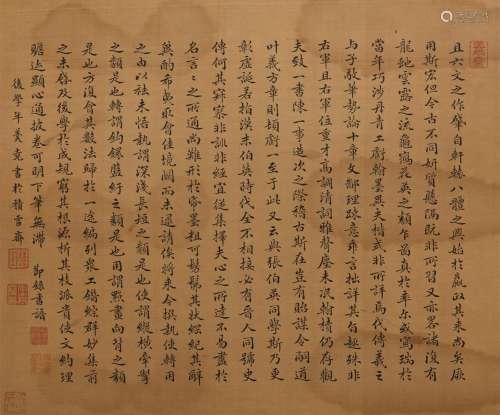 且六文之作肇自軒轅八體之興始於嬴政其來尚矣厥
用斯宏但今古不同妍質懸隔既非所習又亦略諸復有
龍虵雲露之流龜鶴花英之類乍圖真於率尔或寫瑞於
當年巧涉丹青工虧翰墨異夫楷式非所詳焉代傳羲之
与子敬筆勢論十章文鄙理踈意乖言拙詳其旨趣殊非
右軍且右軍位重才高調清詞雅聲塵未泯翰櫝仍存觀
夫致一書陳一事造次之際稽古斯在豈有貽謀令嗣道
叶義方章則頓虧一至于此又云與張伯英同學斯乃更
彰虛誕若指漢末伯英時代全不相接必有晉人同號史
傳何其寂寥非訓非經宜從棄擇夫心之所達不易盡於
名言〻之所通尚難形於紙墨粗可髣髴其狀綱紀其辭
冀酌希夷取會佳境闕而未逮請俟將來今撰執使轉用
之由以祛未悟執謂深淺長短之類是也使謂縱橫牽掣
之類是也轉謂鉤鐶盤紆之類是也用謂點畫向背之類
是也方復會其數法歸於一途編列衆工錯綜群妙集前
之未啓及後學於成規窮其根源析其枝派貴使文約理
贍迹顯心通披卷可明下筆無滯 節錄書譜
後學年羲堯書於積雪齋